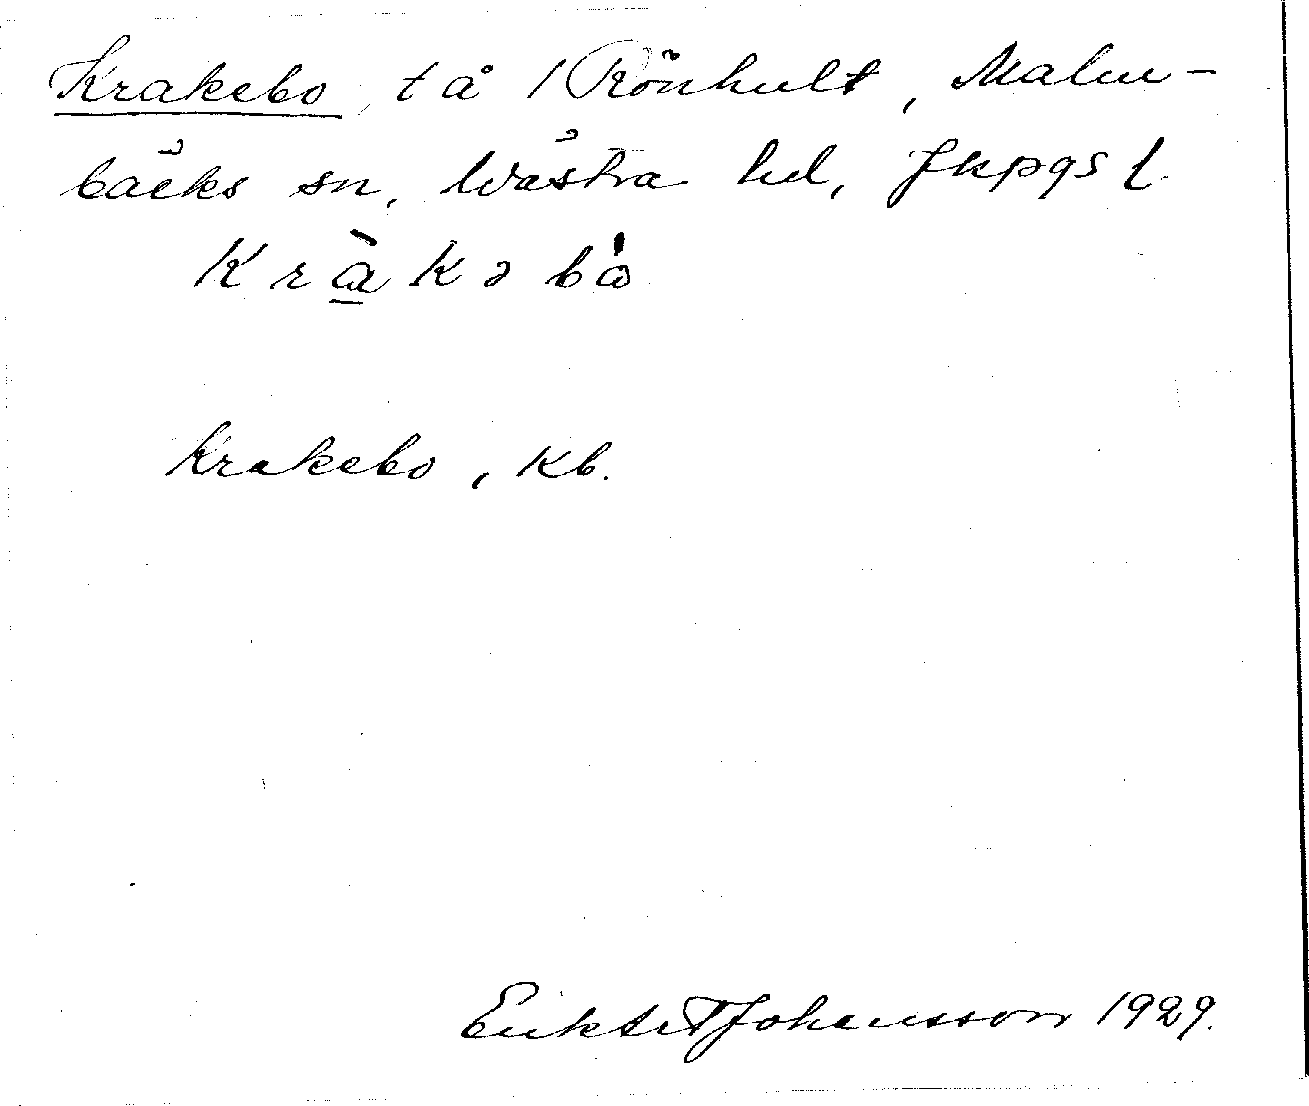 Krakebo, t å / Rönhult, Malm-
bäcks sn, Wästra hd, Jkpgs l.
K r à k ə b ò
Krakebo, Kb.
Johansson 1929.